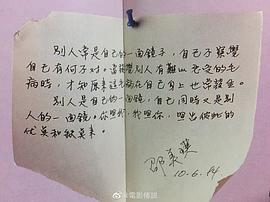 別人常是自己的一面鏡子,自己不察覺
自己有何不对。當發覺別人有難以忍受的毛
病時,才知原来这毛病在自己身上也常發生。
别人是自己的一面鏡,自己同時又是别
人的一面鏡。你照我,我照你,照出彼此的
优奌和缺奌来。
邵美琪
10.6.94
@電影傳說